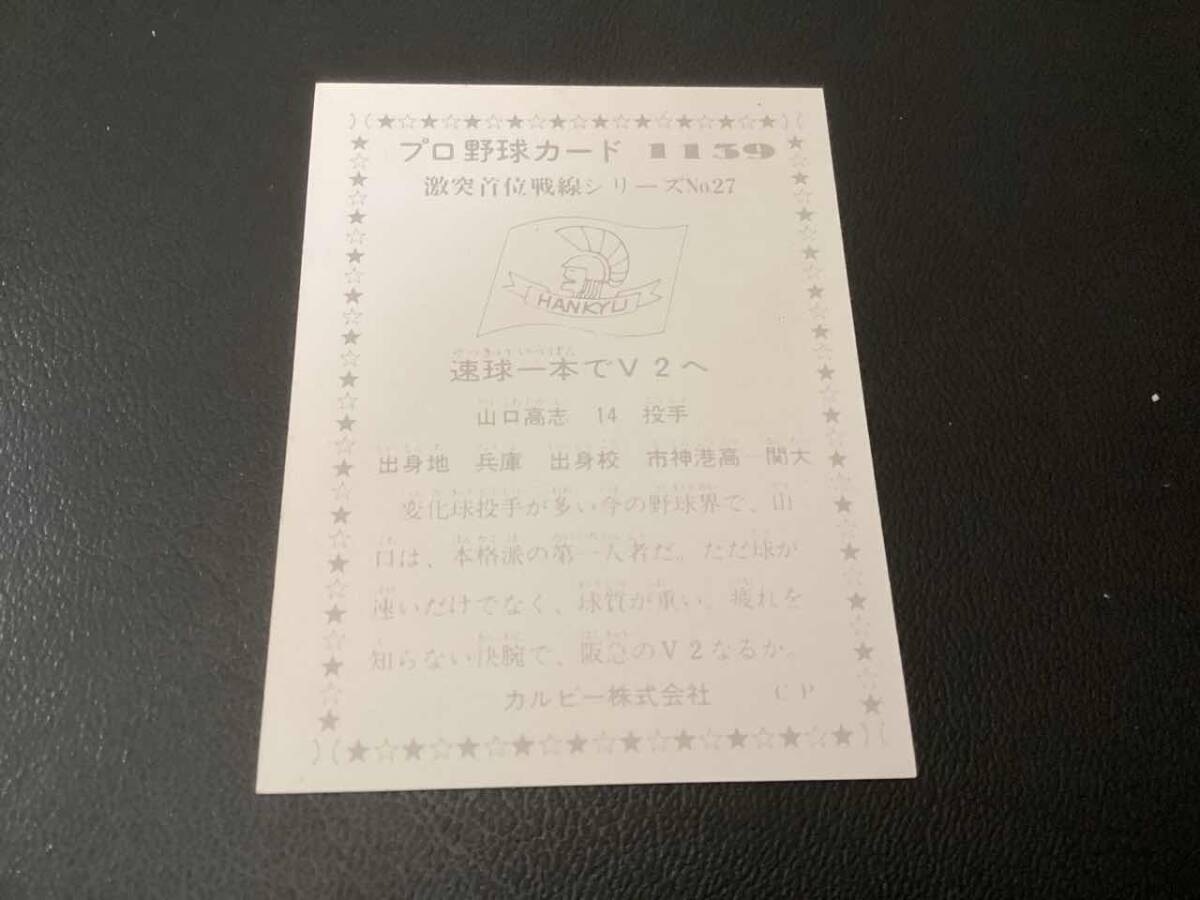 プロ野球カード 1139
激突首位戦線シリーズNo.27
HANKYU
速球一本でV2へ
山口高志 14 投手
出身地 兵庫 出身校 市神港高―関大
変化球投手が多い今の野球界で、山
口は、本格派の第一人者だ。ただ球が
速いだけでなく、球質が重い。疲れを
知らない快腕で、阪急のV2なるか。
カルビー株式会社 CP